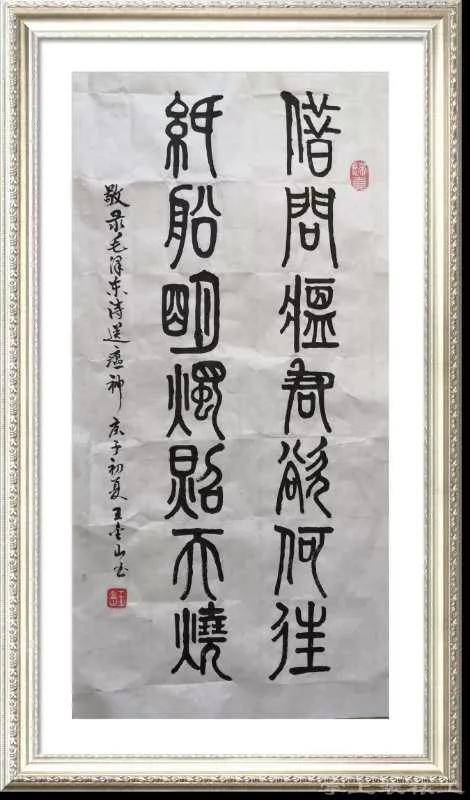 借問瘟君欲何往
紙船明燭照天燒
敬录毛泽东诗送瘟神 庚子初夏 王金山书